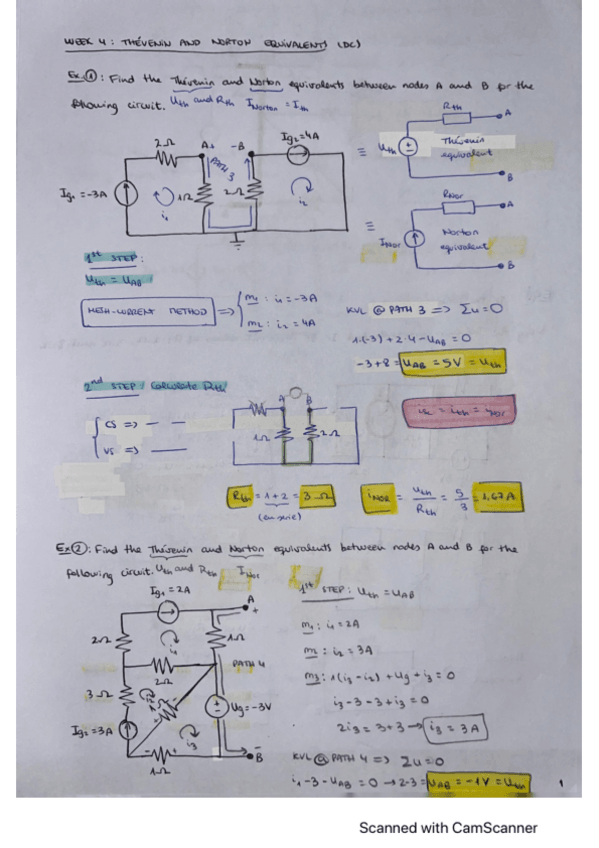 WEEK 4: THÉVENIN AND NORTON EQUIVALENTS (DC)
Ex①: Find the Thévenin and Norton equivalents between nodes A and B for the
following circuit. Uth and Rth INorton = Ith
Rth
A
Uth
Thévenin
equivalent
B
≡
2Ω
A+
-B
Ig2=4A
PATH 3
Ig1=-3A
i1
1Ω
2Ω
i2
≡
RNor
A
INor
Norton
equivalent
B
1st STEP:
Uth = UAB
MESH-CURRENT METHOD => { m1: i1 = -3A
m2: i2 = 4A
KVL @ PATH 3 => Σu = 0
1·(-3) + 2·4 - UAB = 0
-3+8 = UAB = 5V = Uth
2nd STEP Calculate Rth
{ CS => — —
VS => ———
A
B
1Ω
2Ω
isc = ith = iNor
Rth = 1+2 = 3Ω
(en serie)
iNOR = Uth/Rth = 5/3 = 1,67A
Ex②: Find the Thévenin and Norton equivalents between nodes A and B for the
following circuit. Uth and Rth INor
Ig1=2A
A
+
2Ω
i1
1Ω
2Ω
PATH 4
3Ω
Ug=-3V
Ig2=3A
i3
1Ω
-
B
1st STEP: Uth = UAB
m1: i1 = 2A
m2: i2 = 3A
m3: 1(i3-i2) + Ug + i3 = 0
i3-3-3+i3 = 0
2i3 = 3+3 → i3 = 3A
KVL @ PATH 4 => Σu = 0
i1-3-UAB = 0 → 2-3 = UAB = -1V = Uth
1
Scanned with CamScanner